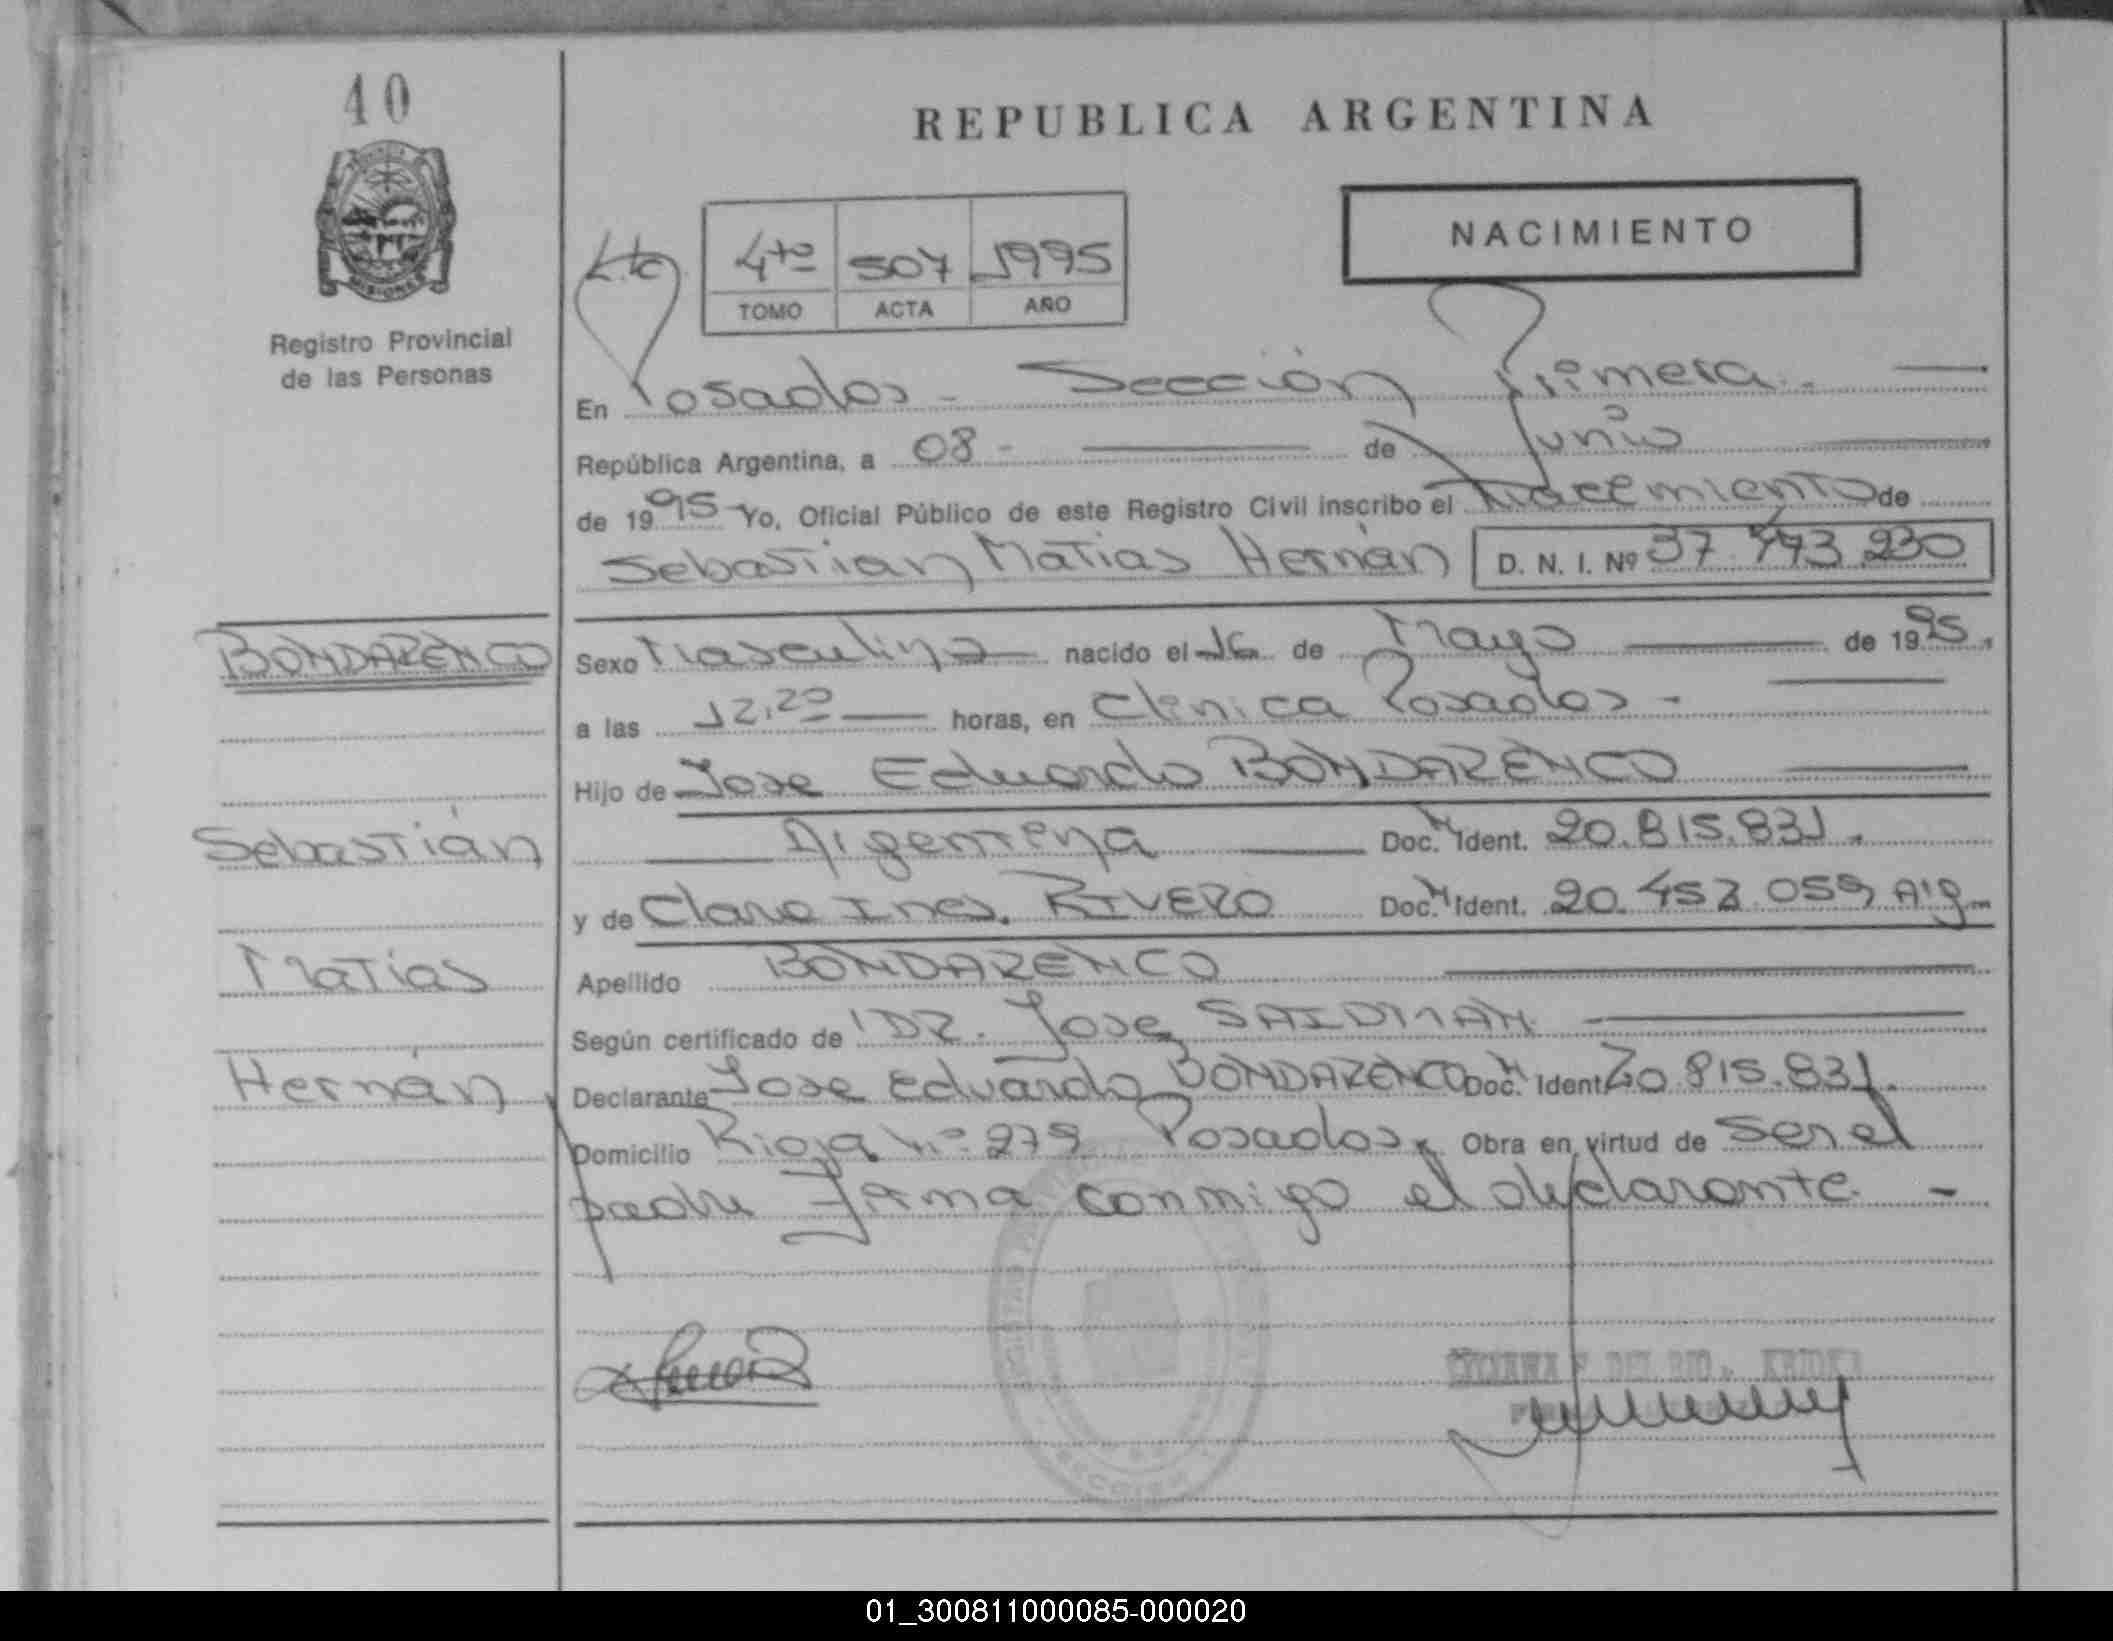 40
REPUBLICA ARGENTINA
NACIMIENTO
4to 507 1995
TOMO ACTA AÑO
MISIONES
Registro Provincial
de las Personas
En Posadas - Sección Primera.
República Argentina, a 08 - de Junio
de 1995 Yo, Oficial Público de este Registro Civil inscribo el Nacimiento de
Sebastian Matias Hernán D. N. I. Nº 37.443.230
BONDARENCO
Sexo Masculino nacido el 16 de Mayo de 1995.
a las 12,20 horas, en Clínica Posadas -
Hijo de Jose Eduardo BONDARENCO
Sebastián
Argentina Doc. N Ident. 20.815.831.
y de Clara Ines. RIVERO Doc. N Ident. 20.453.059 Arg
Matias
Apellido BONDARENCO
Según certificado de DR. Jose SAIDMAN
Hernán
Declarante Jose Eduardo BONDARENCO Doc. N Ident 20.815.831.
Domicilio Rioja Nº 279 Posadas. Obra en virtud de ser el
padre Firma conmigo el declarante. -
SECCION
01_300811000085-000020